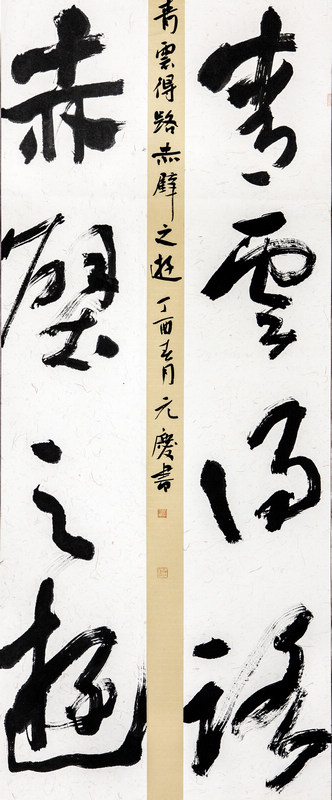 青雲得路
青雲得路赤壁之遊丁酉春月元慶書
赤壁之遊